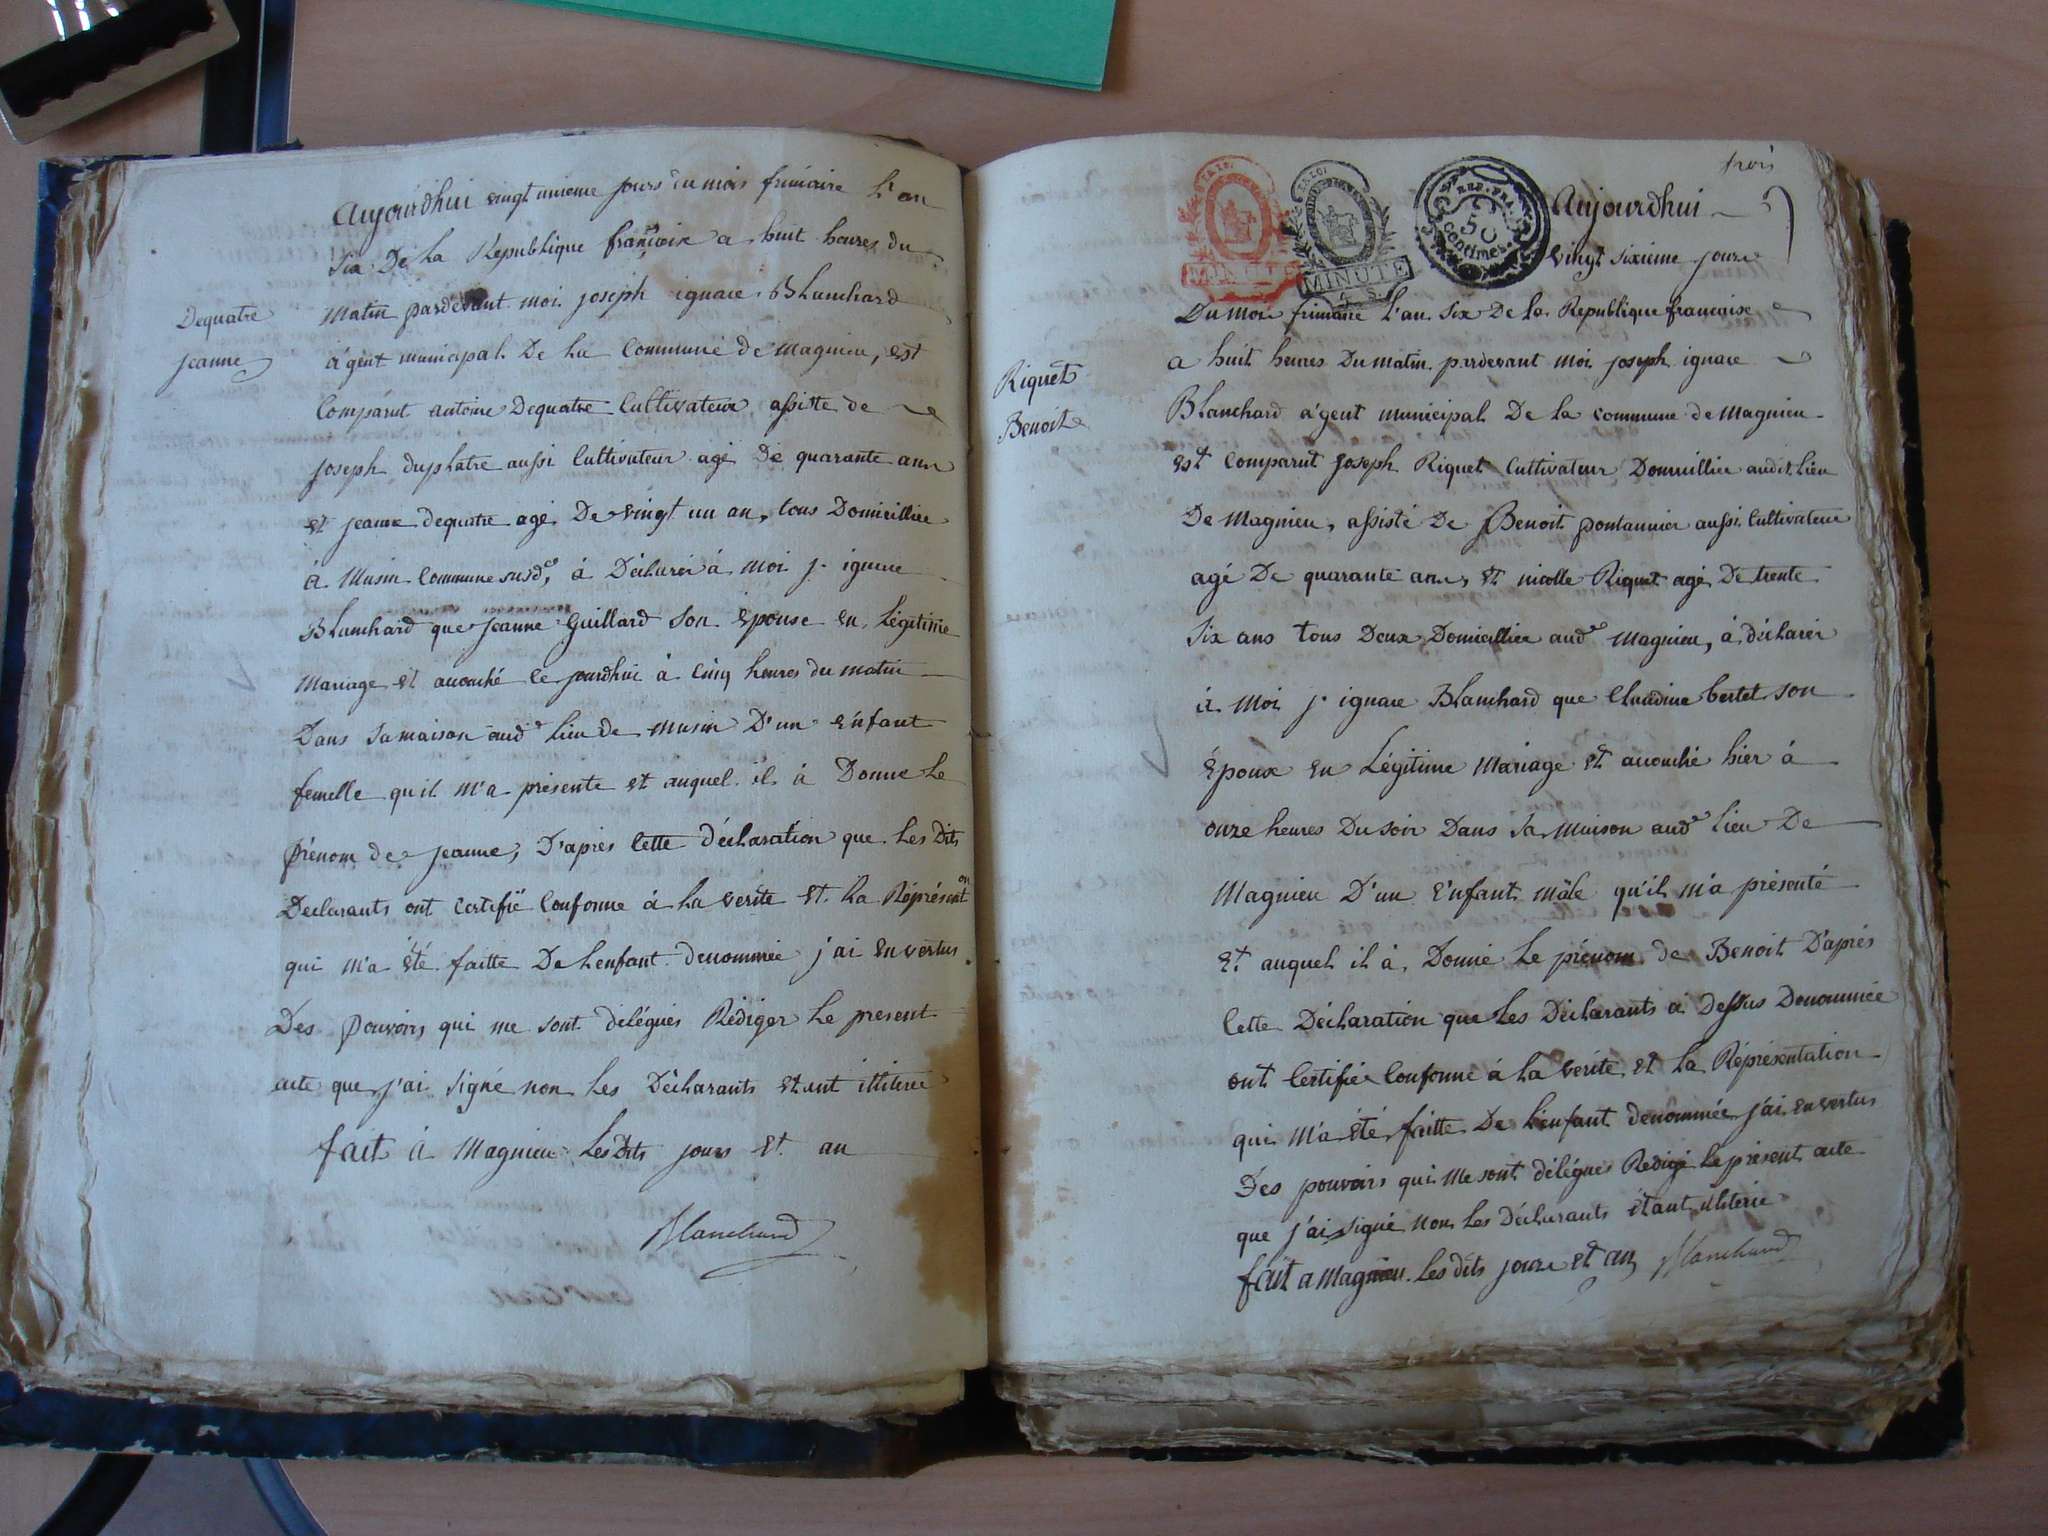 Aujourdhui vingt unieme jours du mois frimaire l'an
six De la Republique françoise a huit heures du
matin pardevant moi joseph ignace Blanchard
agent municipal De la Commune de magnieu, est
Comparut antoine Dequatre Cultivateur assiste de
joseph duplatre aussi Cultivateur agé De quarante ans
et jeanne dequatre agé De vingt un an, tous Domicilliée
à Musin Commune susde, à Déclarer à moi j. ignace
Blanchard que jeanne Guillard son Epouse en Légitime
mariage et acouché ce jourdhui à Cinq heures du matin
Dans sa maison aude lieu de musin D'un Enfant
femelle quil m'a présente et auquel il à Donne le
prénom de jeanne, D'aprés Cette déclaration que les Dits
Declarants ont certifié Conforme à la verite et la Réprésenton
qui m'a été faitte De lenfant denommée j'ai en vertus
Des pouvoirs qui me sont délégués Rédiger le present
acte que j'ai Signé non les Déclarants etant illiteré
fait à Magnieu les Dits jours et an
Blanchard
Dequatre
jeanne
trois
LA LOI
MINUTE
LA LOI
MINUTE
REP. FRA.
50
Centimes
Aujourdhui
vingt sixieme jour
Du mois frimaire l'an six De la Republique francoise
a huit heures Du matin pardevant moi joseph ignace
Blanchard agent municipal De la commune de magnieu
Est Comparut joseph Riquet Cultivateur Domicillié audit lieu
De magnieu, assisté De Benoit pontannier aussi Cultivateur
agé De quarante ans, et nicolle Riquet agé De trente
six ans tous Deux Domicillié aude magnieu, à déclarer
à moi j. ignace Blanchard que Claudine bertet son
épouse en Légitime Mariage et acouché hier à
onze heures Du soir Dans sa maison aude lieu De
Magnieu D'un Enfant mâle qu'il m'a présenté
Et auquel il à Donné le prénom de Benoit D'aprés
Cette Déclaration que les Déclarants ci Dessus Denommée
ont Certifiée Conforme à la vérite et la Réprésentation
qui m'a été faitte De lenfant denommée j'ai en vertus
Des pouvoirs qui me sont délégués Redigé le présent acte
que j'ai signé non les Déclarants étant illiterée
fait a Magnieu les dits jour et an Blanchard
Riquet
Benoit